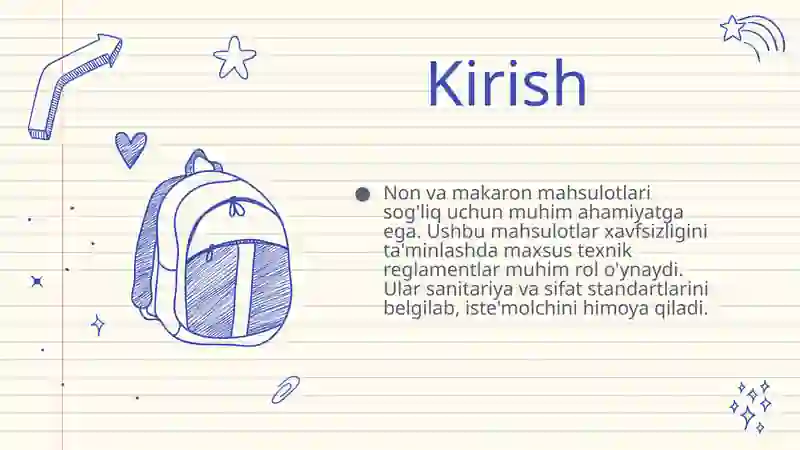 Kirish
Non va makaron mahsulotlari
sog'liq uchun muhim ahamiyatga
ega. Ushbu mahsulotlar xavfsizligini
ta'minlashda maxsus texnik
reglamentlar muhim rol o'ynaydi.
Ular sanitariya va sifat standartlarini
belgilab, iste'molchini himoya qiladi.